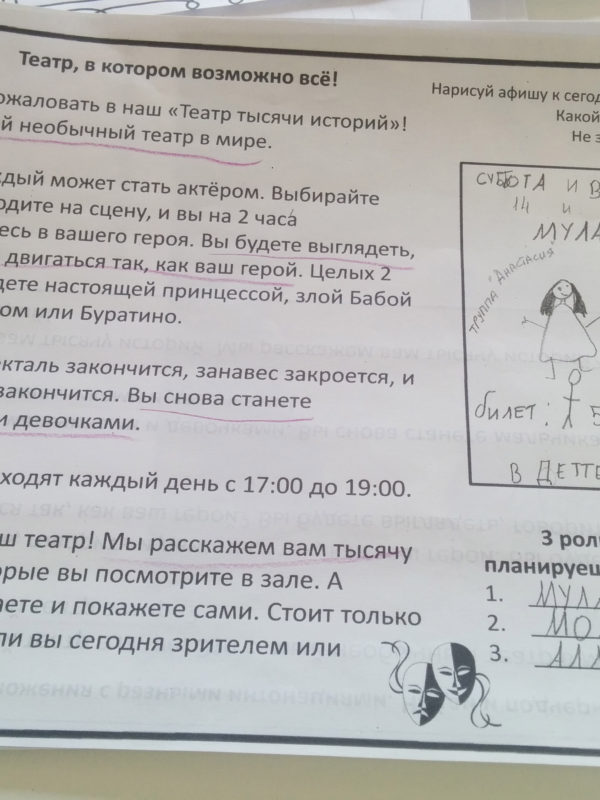 Театр, в котором возможно всё!
ожаловать в наш «Театр тысячи историй»!
й необычный театр в мире.
ждый может стать актёром. Выбирайте
одите на сцену, и вы на 2 часа
есь в вашего героя. Вы будете выглядеть,
двигаться так, как ваш герой. Целых 2
дете настоящей принцессой, злой Бабой
ом или Буратино.
екталь закончится, занавес закроется, и
закончится. Вы снова станете
и девочками.
ходят каждый день с 17:00 до 19:00.
ш театр! Мы расскажем вам тысячу
орые вы посмотрите в зале. А
аете и покажете сами. Стоит только
ли вы сегодня зрителем или
Нарисуй афишу к сегод
Какой
Не з
СУББОТА И В
14 и
МУЛА
ТРУППА "АНАСТАСИЯ"
билет: 5
В ДЕТТЕ
3 рол
планируеш
1. МУЛА
2. МО
3. АЛ